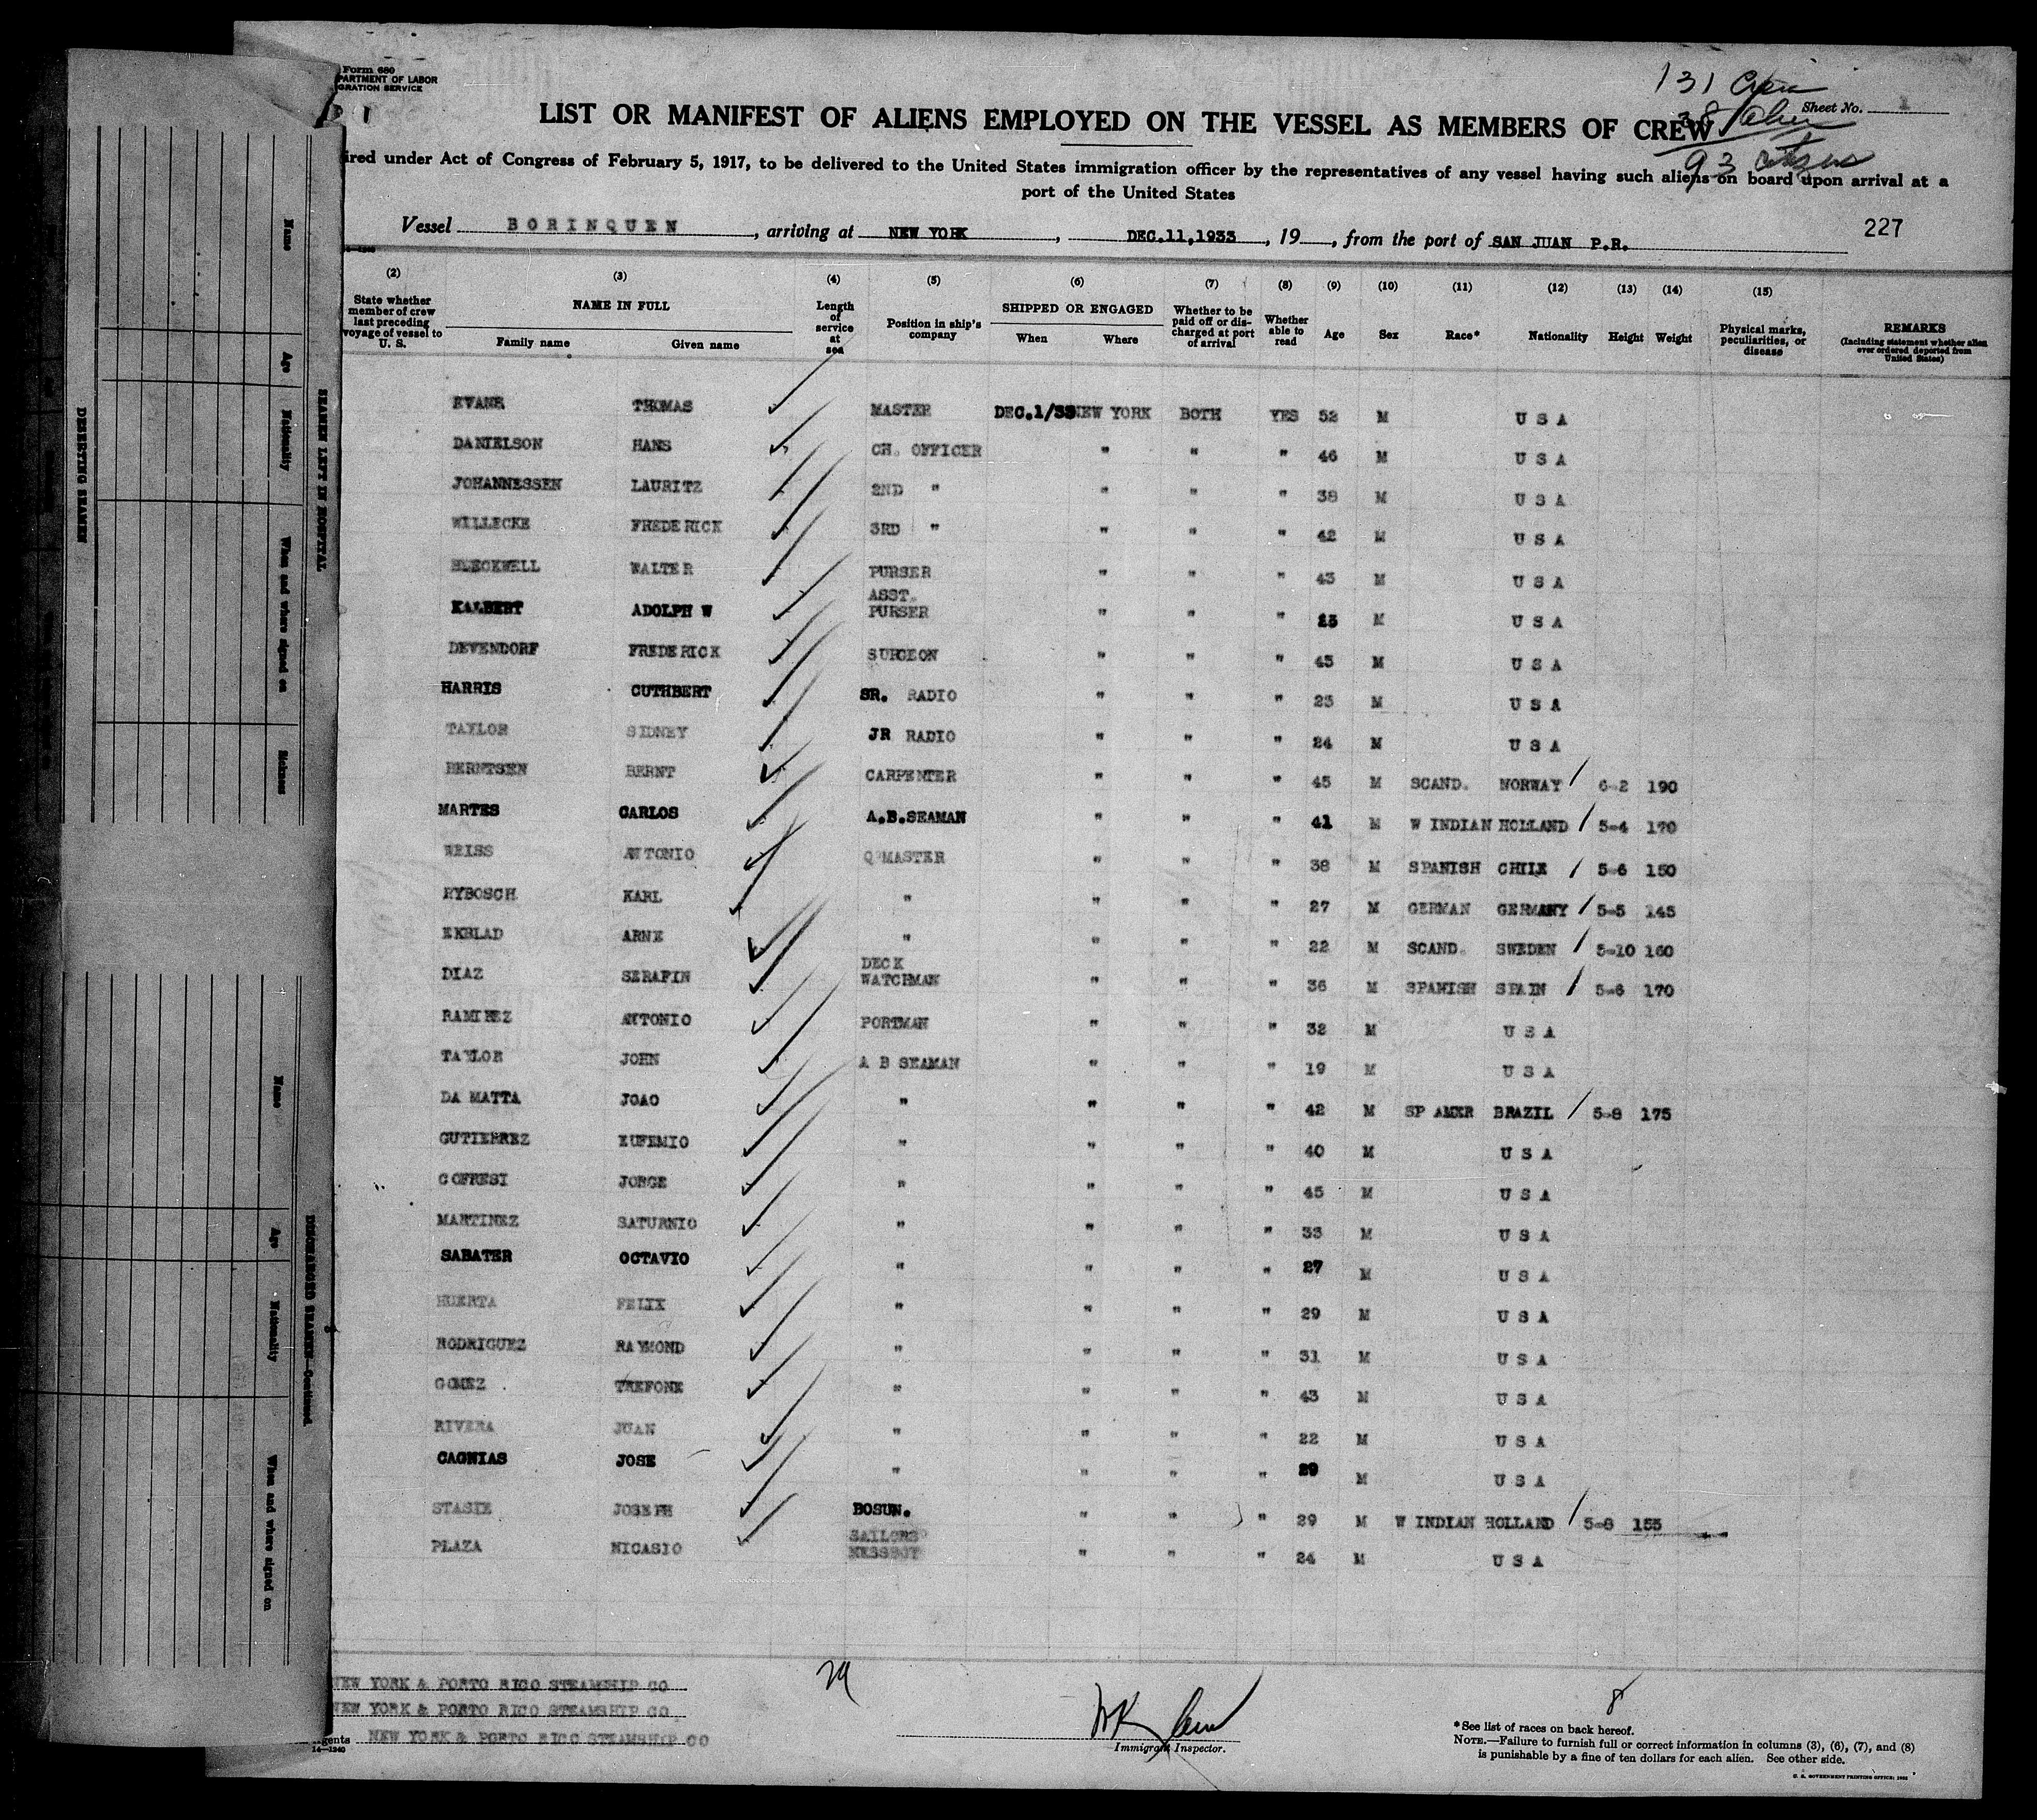 Form 680
PARTMENT OF LABOR
GRATION SERVICE
131 Crew
Sheet No. 1
38 Alien
93 citizens
LIST OR MANIFEST OF ALIENS EMPLOYED ON THE VESSEL AS MEMBERS OF CREW
ired under Act of Congress of February 5, 1917, to be delivered to the United States immigration officer by the representatives of any vessel having such aliens on board upon arrival at a
port of the United States
Vessel BORINQUEN, arriving at NEW YORK, DEC.11,1933, 19, from the port of SAN JUAN P.R.
227
(2) (3) (4) (5) (6) (7) (8) (9) (10) (11) (12) (13) (14) (15)
State whether member of crew last preceding voyage of vessel to U. S.
NAME IN FULL
Family name Given name
Length of service at sea
Position in ship's company
SHIPPED OR ENGAGED
When Where
Whether to be paid off or discharged at port of arrival
Whether able to read
Age Sex Race* Nationality Height Weight
Physical marks, peculiarities, or disease
REMARKS
(Including statement whether alien ever ordered deported from United States)
EVANS THOMAS MASTER DEC.1/33 NEW YORK BOTH YES 52 M U S A
DANIELSON HANS CH. OFFICER " " " 46 M U S A
JOHANNESSEN LAURITZ 2ND " " " " 38 M U S A
WILLECKE FREDERICK 3RD " " " " 42 M U S A
WALTER PURSER " " " 43 M U S A
KALBERT ADOLPH W ASST. PURSER " " " 23 M U S A
DEVENDORF FREDERICK SURGEON " " " 43 M U S A
HARRIS CUTHBERT SR. RADIO " " " 23 M U S A
TAYLOR SIDNEY JR RADIO " " " 24 M U S A
BERNTSEN BERNT CARPENTER " " " 45 M SCAND. NORWAY / 6-2 190
MARTES CARLOS A.B.SEAMAN " " " 41 M W INDIAN HOLLAND / 5-4 170
WEISS ANTONIO Q'MASTER " " " 38 M SPANISH CHILE / 5-6 150
RYBOSCH KARL " " " " 27 M GERMAN GERMANY / 5-5 145
EKBLAD ARNE " " " " 22 M SCAND. SWEDEN / 5-10 160
DIAZ SERAFIN DECK WATCHMAN " " " 36 M SPANISH SPAIN / 5-6 170
RAMIREZ ANTONIO PORTMAN " " " 32 M U S A
TAYLOR JOHN A B SEAMAN " " " 19 M U S A
DA MATTA JOAO " " " " 42 M SP AMER BRAZIL / 5-8 175
GUTIERREZ EUFEMIO " " " " 40 M U S A
COFRESI JORGE " " " " 45 M U S A
MARTINEZ SATURNIO " " " " 33 M U S A
SABATER OCTAVIO " " " " 27 M U S A
HUERTA FELIX " " " " 29 M U S A
RODRIGUEZ RAYMOND " " " " 31 M U S A
GOMEZ TREFONE " " " " 43 M U S A
RIVERA JUAN " " " " 22 M U S A
CAGNIAS JOSE " " " " 29 M U S A
STASIE JOSEPH BOSUN. " " " 29 M W INDIAN HOLLAND / 5-8 155
PLAZA NICASIO SAILORS MESSBOY " " " 24 M U S A
NEW YORK & PORTO RICO STEAMSHIP CO
NEW YORK & PORTO RICO STEAMSHIP CO
gents NEW YORK & PORTO RICO STEAMSHIP CO
14—1240
29
Immigrant Inspector.
8
*See list of races on back hereof.
NOTE.—Failure to furnish full or correct information in columns (3), (6), (7), and (8)
is punishable by a fine of ten dollars for each alien. See other side.
U. S. GOVERNMENT PRINTING OFFICE:
DESERTING SEAMEN
SEAMEN LEFT IN HOSPITAL
Name
Age
Nationality
When and where signed on
Sickness
DISCHARGED SEAMEN—Continued
Name
Age
Nationality
When and where signed on